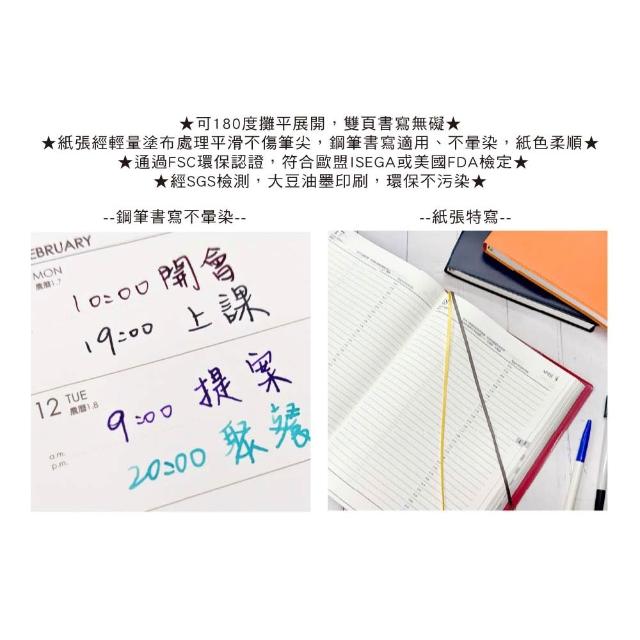 ★可180度攤平展開，雙頁書寫無礙★
★紙張經輕量塗布處理平滑不傷筆尖，鋼筆書寫適用、不暈染，紙色柔順★
★通過FSC環保認證，符合歐盟ISEGA或美國FDA檢定★
★經SGS檢測，大豆油墨印刷，環保不污染★
--鋼筆書寫不暈染--
--紙張特寫--
EBRUARY
MON
農曆1.7
10:00 開會
19:00 上課
12 TUE
農曆1.8
9:00 提案
a.m.
p.m.
20:00 聚餐